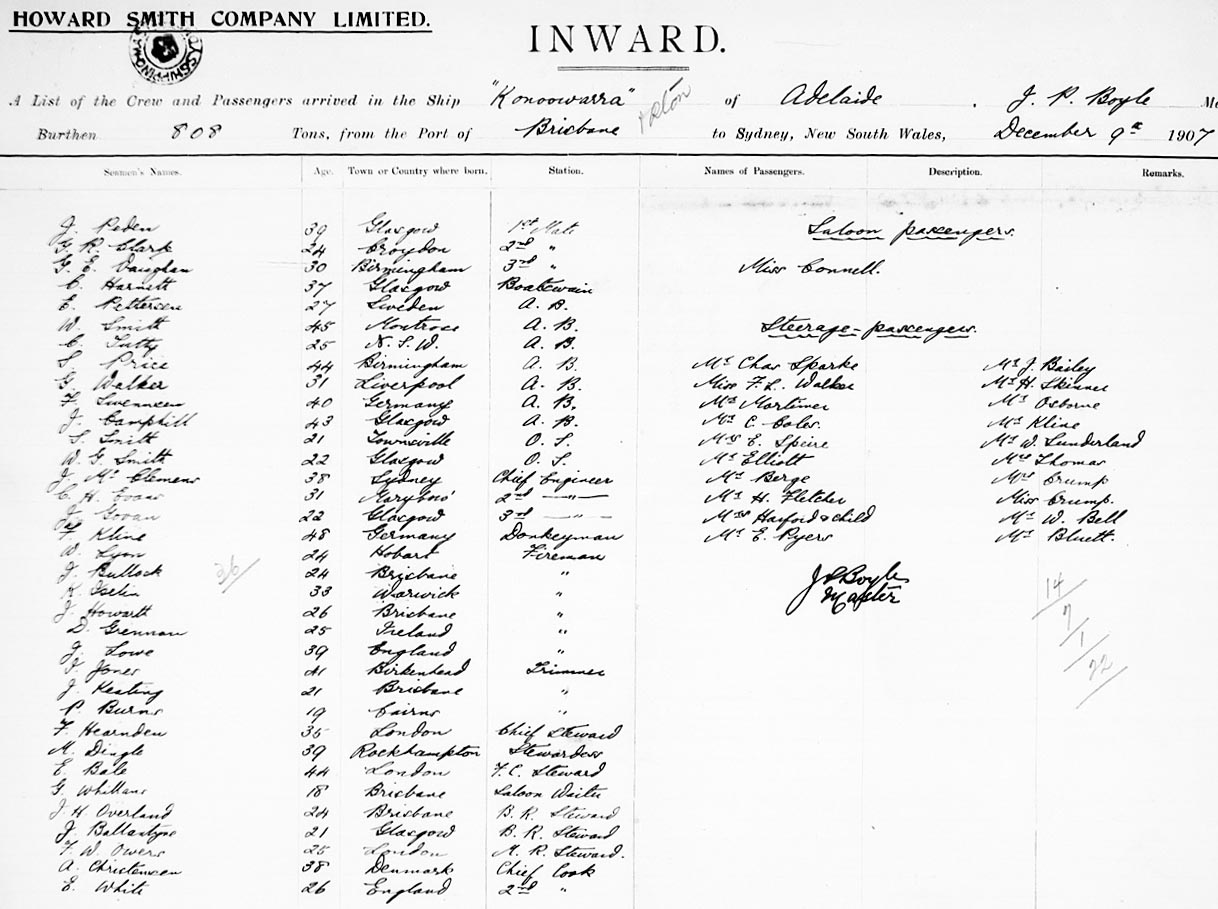 HOWARD SMITH COMPANY LIMITED.
INWARD.
A List of the Crew and Passengers arrived in the Ship "Konoowarra" of Adelaide . J. P. Boyle
Burthen 808 Tons, from the Port of Brisbane to Sydney, New South Wales, December 9th 1907
Seamen's Names. Age. Town or Country where born. Station. Names of Passengers. Description. Remarks.
J. Peden 39 Glasgow 1st Mate Saloon passengers.
G. R. Clark 24 Croydon 2nd "
G. E. Vaughan 30 Birmingham 3rd " Miss Connell.
C. Harnett 37 Glasgow Boatswain
E. Pettersen 27 Sweden A. B.
W. Smith 45 Montrose A. B. Steerage-passengers.
C. Tutty 25 N. S. W. A. B.
S. Price 44 Birmingham A. B. Mr Chas Sparke Mr J. Bailey
G. Walker 31 Liverpool A. B. Miss F. L. Walker Mr H. Skinner
F. 40 Germany A. B. Mr Mortimer Mr Osborne
J. Camphill 43 Glasgow A. B. Mr C. Coles. Mr Kline
S. Smith 21 Townsville O. S. Mrs E. Speire Mr W. Sunderland
W. G. Smith 22 Glasgow O. S. Mr Elliott Mrs Thomas
J. Mc Clemens 38 Sydney Chief Engineer Mr Berge Mrs Crump
C. H. Evans 31 Marybro' 2nd —"— Mr H. Fletcher Miss Crump.
J. Govan 22 Glasgow 3rd —"— Mrs Harford & child Mr W. Bell
F. Kline 48 Germany Donkeyman Mr E. Pyers Mr Bluett.
W. Lyon 24 Hobart Fireman
J. Bullock 36 24 Brisbane " J P Boyle 14
K. Iselin 33 Warwick " Master
J. Howarth 26 Brisbane " 7
D. Grennan 25 Ireland " 1
J. Lowe 39 England " 22
J. Jones 41 Birkenhead Trimmer
J. Keating 21 Brisbane "
P. Burns 19 Cairns "
F. Hearnden 35 London Chief Steward
M. Dingle 39 Rockhampton Stewardess
E. Bale 44 London F. C. Steward
G. Whittans 18 Brisbane Saloon Waiter
J. H. Overland 24 Brisbane B. R. Steward
J. Ballantyne 21 Glasgow B. R. Steward
F. W. Owers 25 London M. R. Steward.
A. Christensen 38 Denmark Chief Cook
E. White 26 England 2nd "